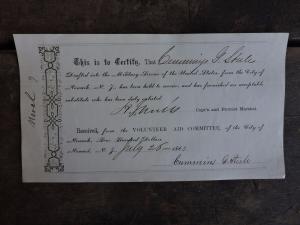 This is to Certify, That Cummings G. Steele
Drafted into the Military Service of the United States, from the City of
Newark, N. J., has been held to service, and has furnished an acceptable
substitute who has been duly enlisted.
Capt'n and Provost Marshal.
Received, from the VOLUNTEER AID COMMITTEE, of the City of
Newark, Hundred Dollars
Newark, N. J., July 26 1863
Cummins G. Steele